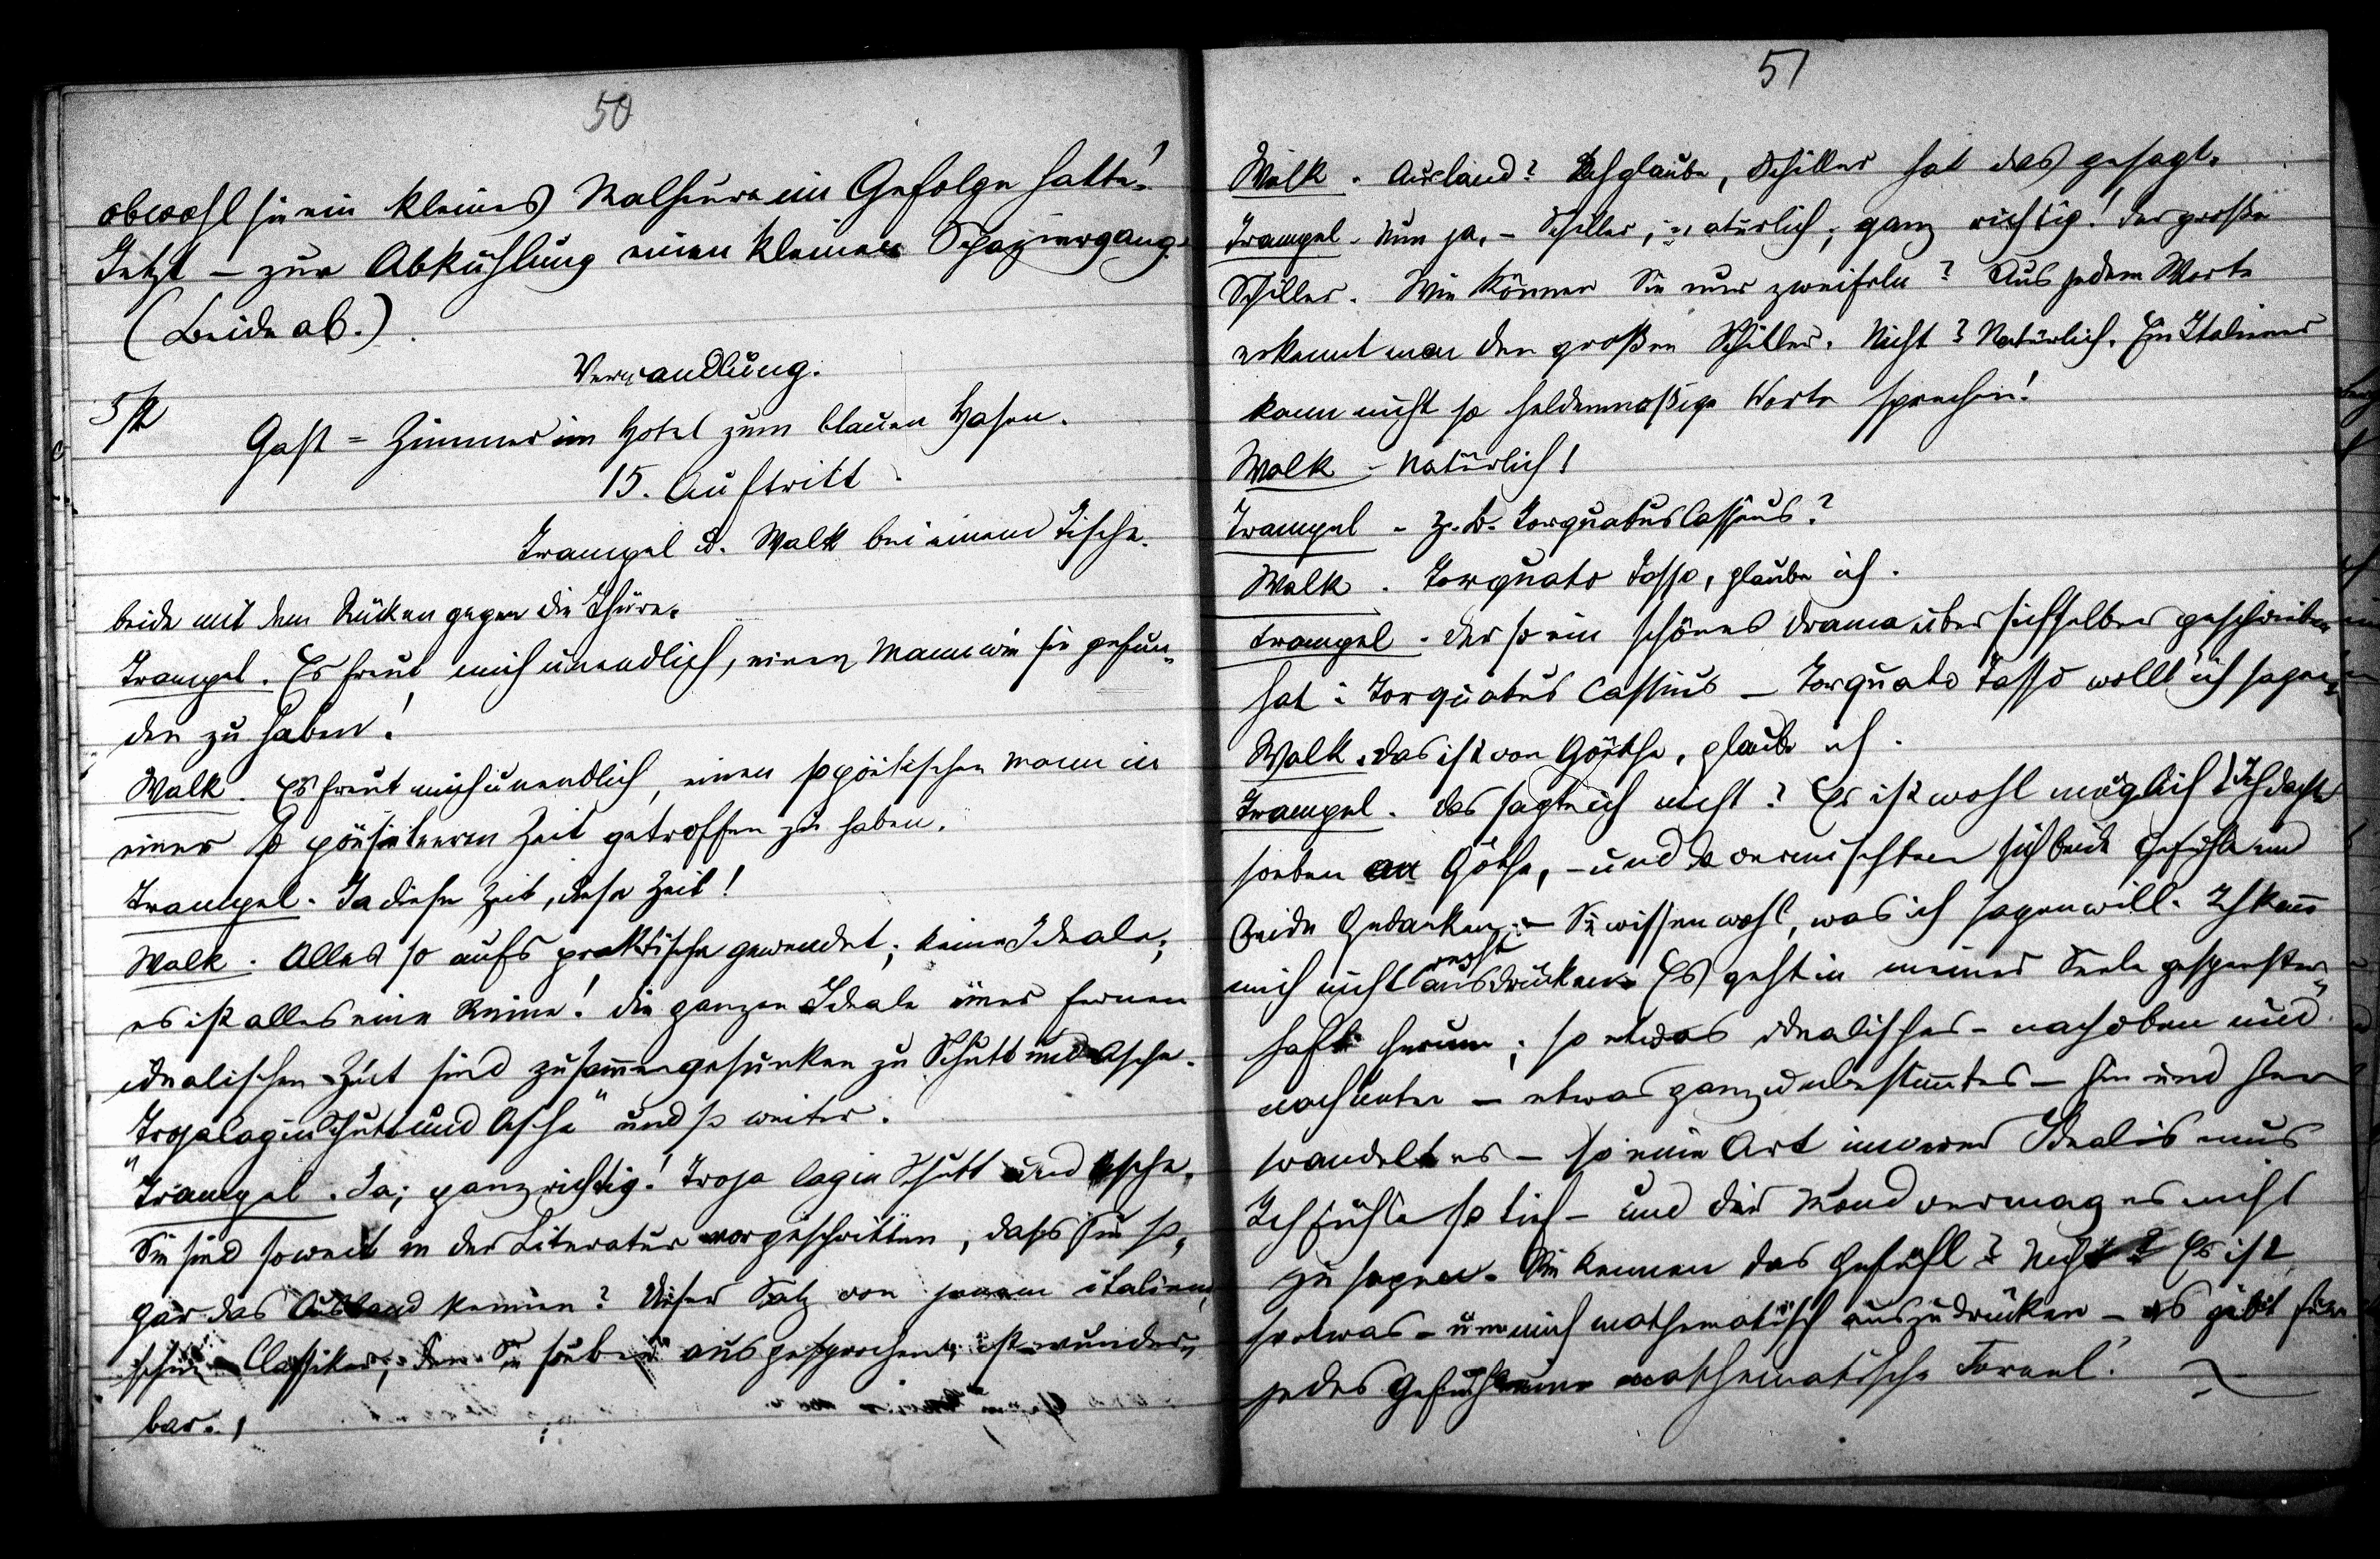 50
obwohl sie ein kleines Malheur im Gefolge hatte!
Jetzt – zur Abkühlung einen kleinen Spaziergang.
(Beide ab.)
Verwandlung.
Gast = Zimmer im Hotel zum blauen Hasen.
15. Auftritt
Trampel u. Walk bei einem Tische.
beide mit dem Rücken gegen die Thüre.
Trampel. Es freut mich unendlich, einen Mann wie sie gefun„
den zu haben!
Walk. Es freut mich unendlich, einen so poetischen Mann in
einer so poesieleeren Zeit getroffen zu haben.
Trampel. Ja diese Zeit, diese Zeit!
Walk. Alles so aufs praktische gewendet; keine Ideale;
es ist alles eine Ruine! die ganzen Ideale einer fernen
idealischen Zeit sind zusammengesunken zu Schutt und Asche.
„Troja lag in Schutt und Asche" und so weiter.
Trampel. Ja; ganz richtig! Troja lag in Schutt und Asche.
Sie sind soweit in der Literatur vorgeschritten, dass sie so„
gar das Ausland kennen? Dieser Satz von jenem italieni„
schen Classiker, den Sie soeben ausgesprochen, ist wunder„
bar.
51
Walk. Ausland? Ich glaube, Schiller hat das gesagt.
Trampel. Nun ja, – Schiller, natürlich; ganz richtig! der große
Schiller. Wie können Sie nur zweifeln? Aus jedem Worte
erkennt man den großen Schiller. Nicht? Natürlich. Ein Italiener
kann nicht so heldenmäßige Worte sprechen!
Walk – Natürlich!
Trampel – z. B. Torquatus Cassius?
Walk. Torquato Tasso, glaube ich.
Trampel. der so ein schönes Drama über sich selber geschrieben
hat: Torquatus Cassius – Torquato Tasso wollt' ich sagen.
Walk. das ist von Göthe, glaube ich.
Trampel. das sagte ich nicht? Es ist wohl möglich! Ich dachte
soeben an Göthe, – und da vermischten sich beide Gefühle und
beide Gedanken; – Sie wissen wohl, was ich sagen will. Ich kann
mich nicht recht ausdrücken. Es geht in meiner Seele gespenster„
haft herum; so etwas idealisches – nach oben und
nach unten – etwas ganz unbestimmtes – hin und her
wandelt es – so eine Art innerer Idealismus
Ich fühle so tief – und der Mund vermag es nicht
zu sagen. Sie kennen das Gefühl? Nicht? Es ist
so etwas – um mich mathematisch auszudrücken – es gibt für
jedes Gefühl eine mathematische Formel!